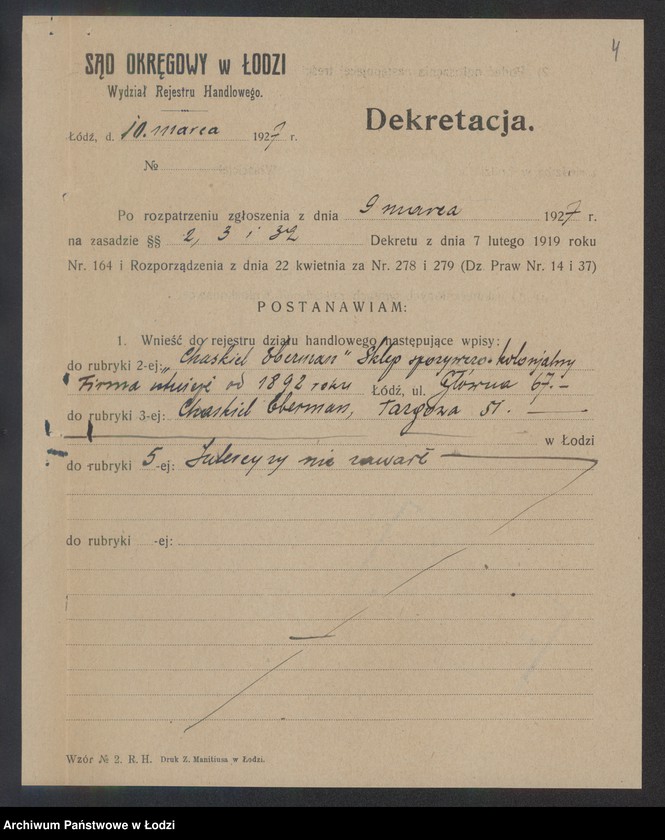 4
SĄD OKRĘGOWY w ŁODZI
Wydział Rejestru Handlowego.
Łódź, d. 10. marca 1927 r.
№
Dekretacja.
Po rozpatrzeniu zgłoszenia z dnia 9 marca 1927 r.
na zasadzie §§ 2, 3 i 32 Dekretu z dnia 7 lutego 1919 roku
Nr. 164 i Rozporządzenia z dnia 22 kwietnia za Nr. 278 i 279 (Dz. Praw Nr. 14 i 37)
POSTANAWIAM:
1. Wnieść do rejestru działu handlowego następujące wpisy:
do rubryki 2-ej: „Chaskiel Eberman" Sklep spożywczo-kolonjalny
Firma istnieje od 1892 roku Łódź, ul. Główna 67.—
do rubryki 3-ej: Chaskiel Eberman, Targowa 51. —
w Łodzi
do rubryki 5-ej: Intercyzy nie zawarł —
do rubryki -ej:
Wzór № 2. R. H. Druk Z. Manitiusa w Łodzi.
Archiwum Państwowe w Łodzi